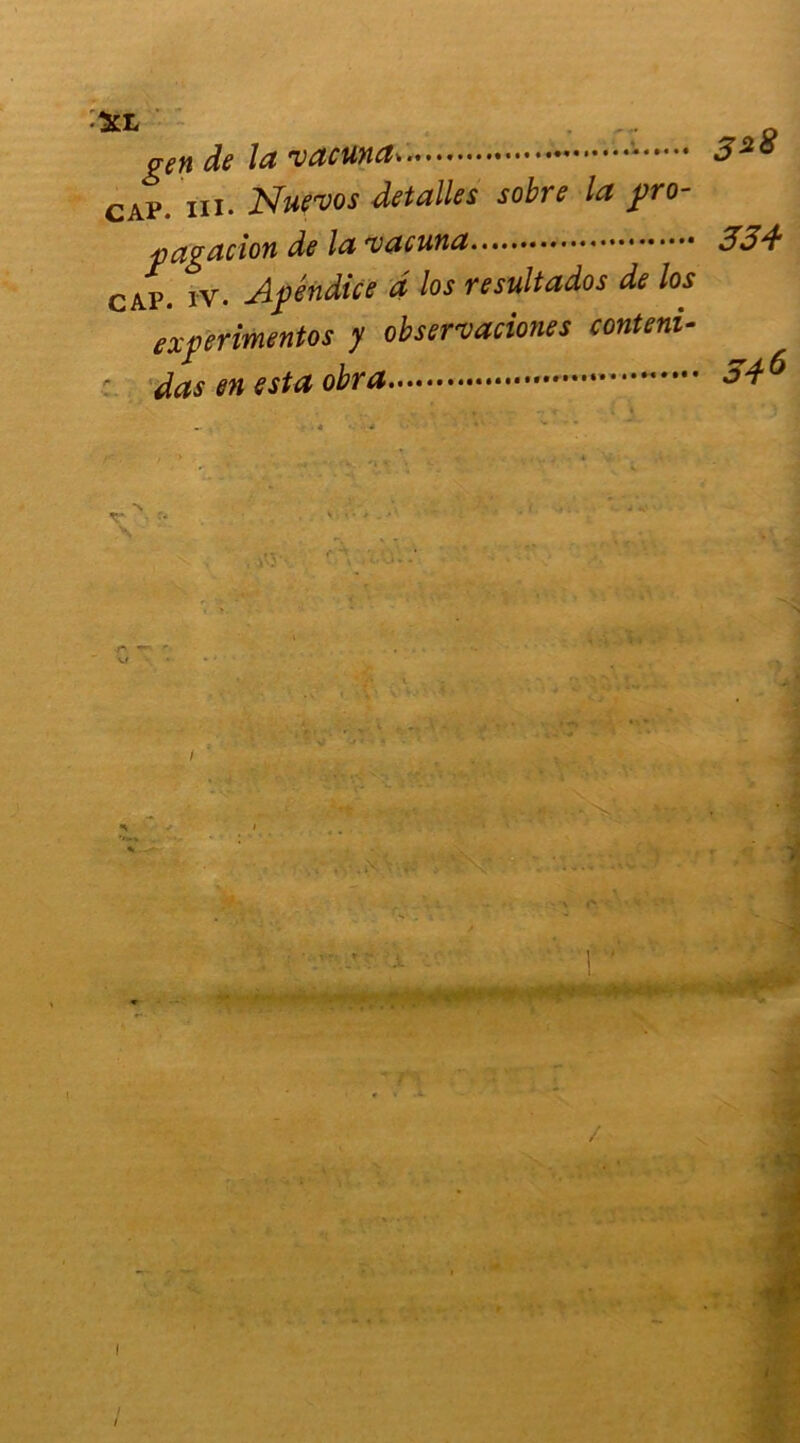 XL
gen de la vacuna........................... 328
CAP. III. Nuevos detalles sobre la pro-
pagacion de la vacuna........................ 334
CAP. IV. Apéndice á los resultados de los
experimentos y observaciones conteni-
das en esta obra................................. 346